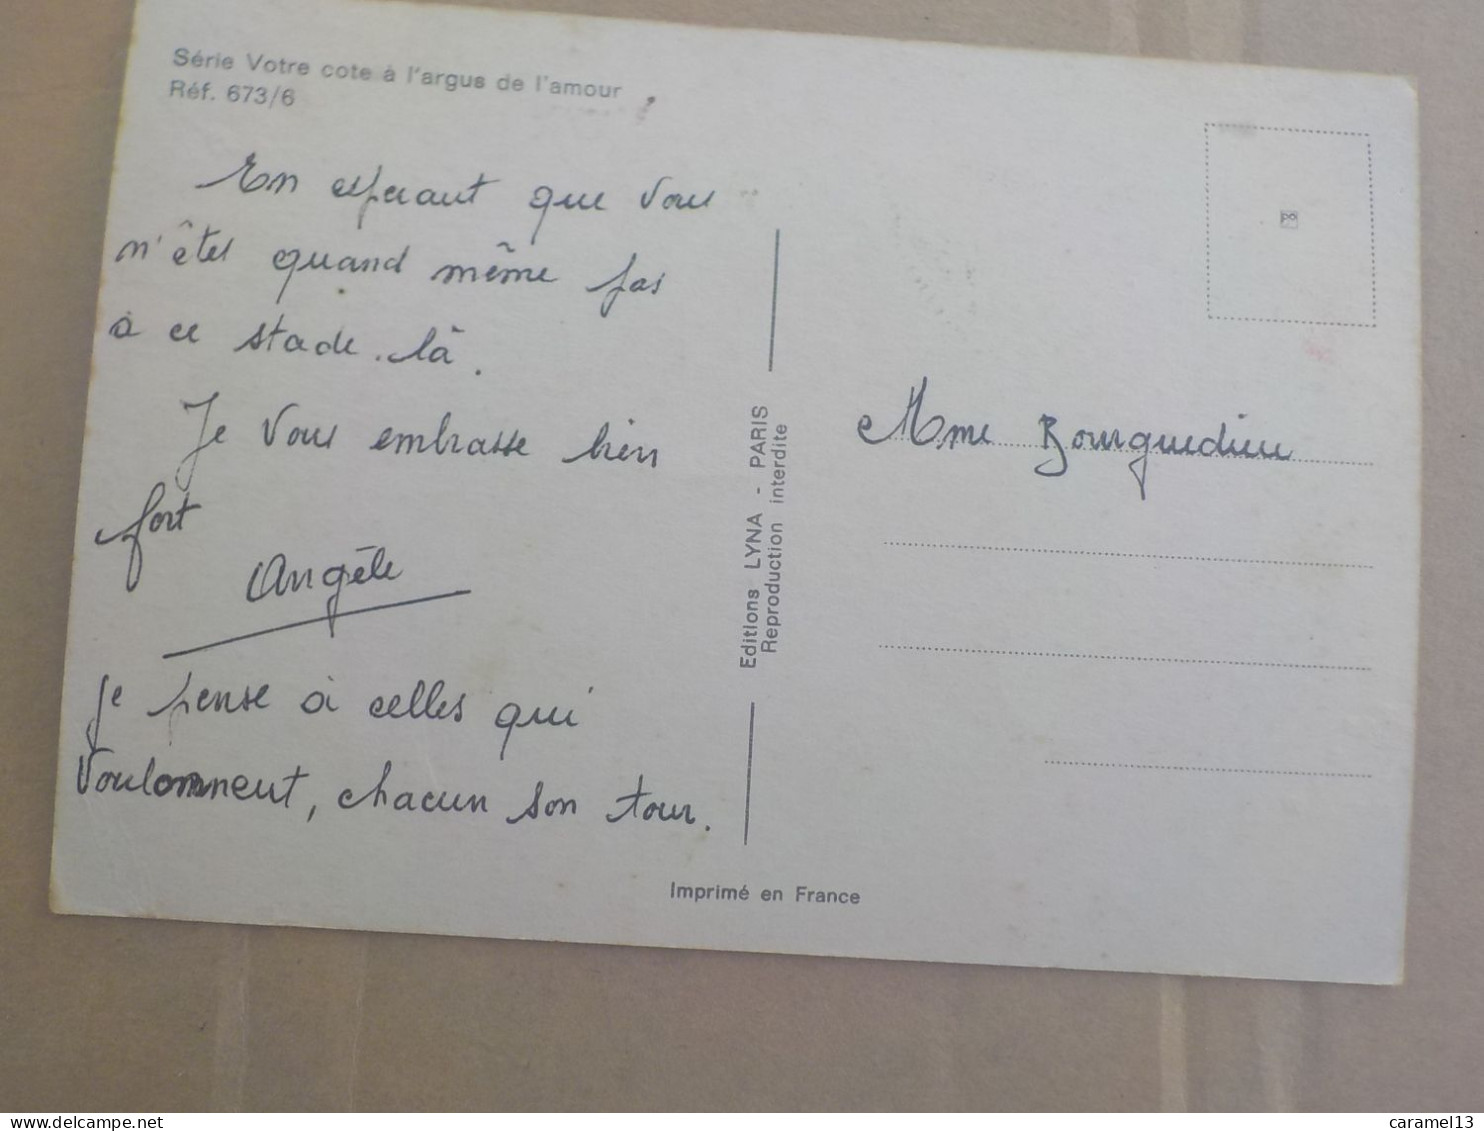 Série Votre cote à l'argus de l'amour
Réf. 673/6
En esperant que vous
n'êtes quand même pas
à ce stade. là.
Je vous embrasse bien
fort
Angèle
je pense à celles qui
voulonnent, chacun son tour.
Editions LYNA - PARIS
Reproduction interdite
Mme Bourguedieu
Imprimé en France
www.delcampe.net
caramel13